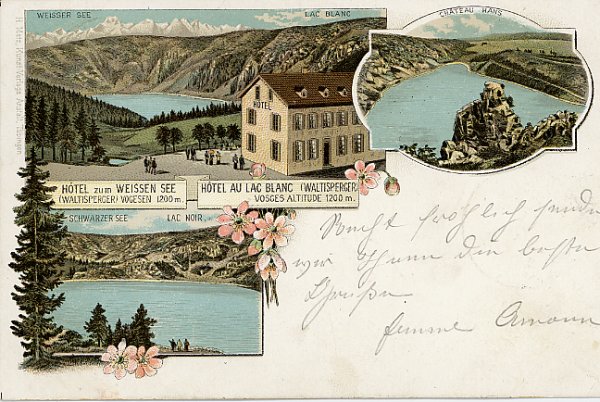 WEISSER SEE LAC BLANC
CHÂTEAU HANS
HÔTEL
HÔTEL ZUM WEISSEN SEE
(WALTISPERGER) VOGESEN 1200 m.
HÔTEL AU LAC BLANC (WALTISPERGER)
VOSGES ALTITUDE 1200 m.
SCHWARZER SEE LAC NOIR.
fröhlich senden
wir Ihnen die beste
Grüße